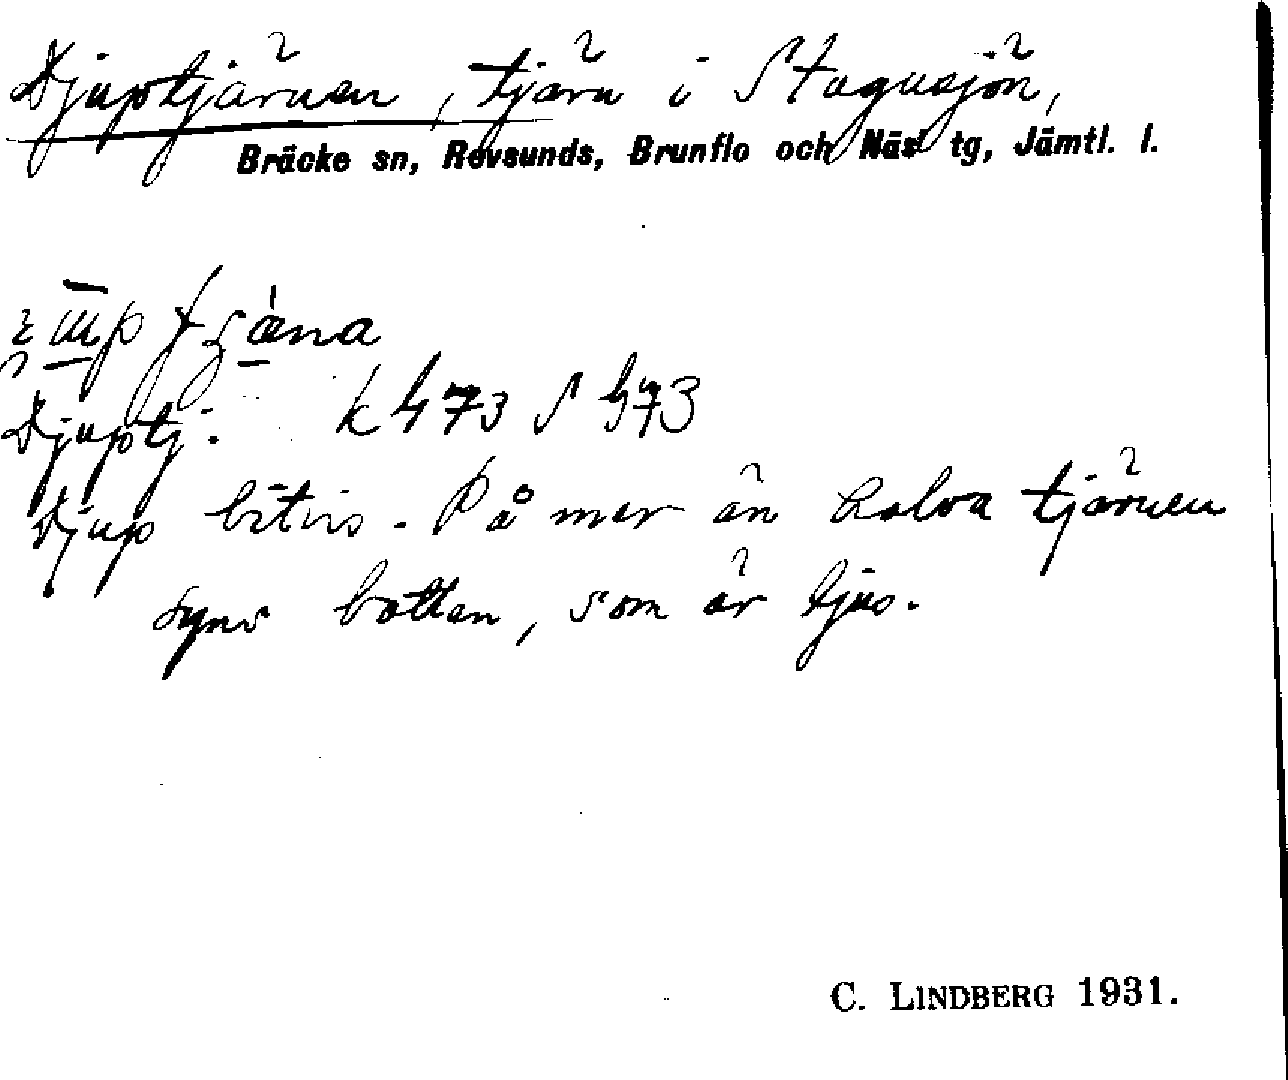 Djuptjärnen, tjärn i Stugusjön,
Bräcke sn, Revsunds, Brunflo och Näs tg, Jämtl. l.
Djuptj. k 473 S 473
Djup bitvis. På mer än halva tjärnen
syns botten, som är ljus.
C. LINDBERG 1931.